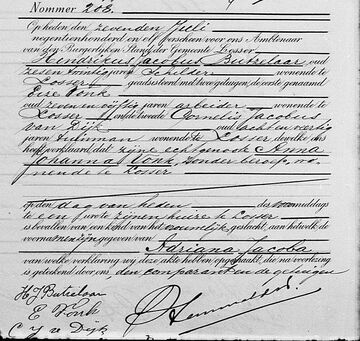 Nummer 268.
Op heden den zevenden Juli
negentienhonderd en elf verscheen voor ons Ambtenaar
van den Burgerlijken Stand der Gemeente Losser
Hendrikus Jacobus Butzelaar oud
zesentwintig jaren Schilder wonende te
Losser geadsisteerd met twee getuigen, de eerste genaamd
Vonk
oud zevenenvijftig jaren arbeider wonende te
Losser en de tweede Cornelis Jacobus
van Dijk oud achtenveertig
jaren tuinman wonende te Losser dewelke ons
heeft verklaard, dat zijne echtgenoote Anna
Johanna Vonk, zonder beroep, wo-
nende te Losser
op den dag van heden des voormiddags
te een ure te zijnen huize te Losser
is bevallen van een kind van het vrouwelijk geslacht, aan hetwelk de
voornamen zijn gegeven van
Adriana Jacoba
van welke verklaring wij deze akte hebben opgemaakt, die na voorlezing
is geteekend door ons, den comparant en de getuigen
H J Butzelaar
E Vonk
C J v Dijk